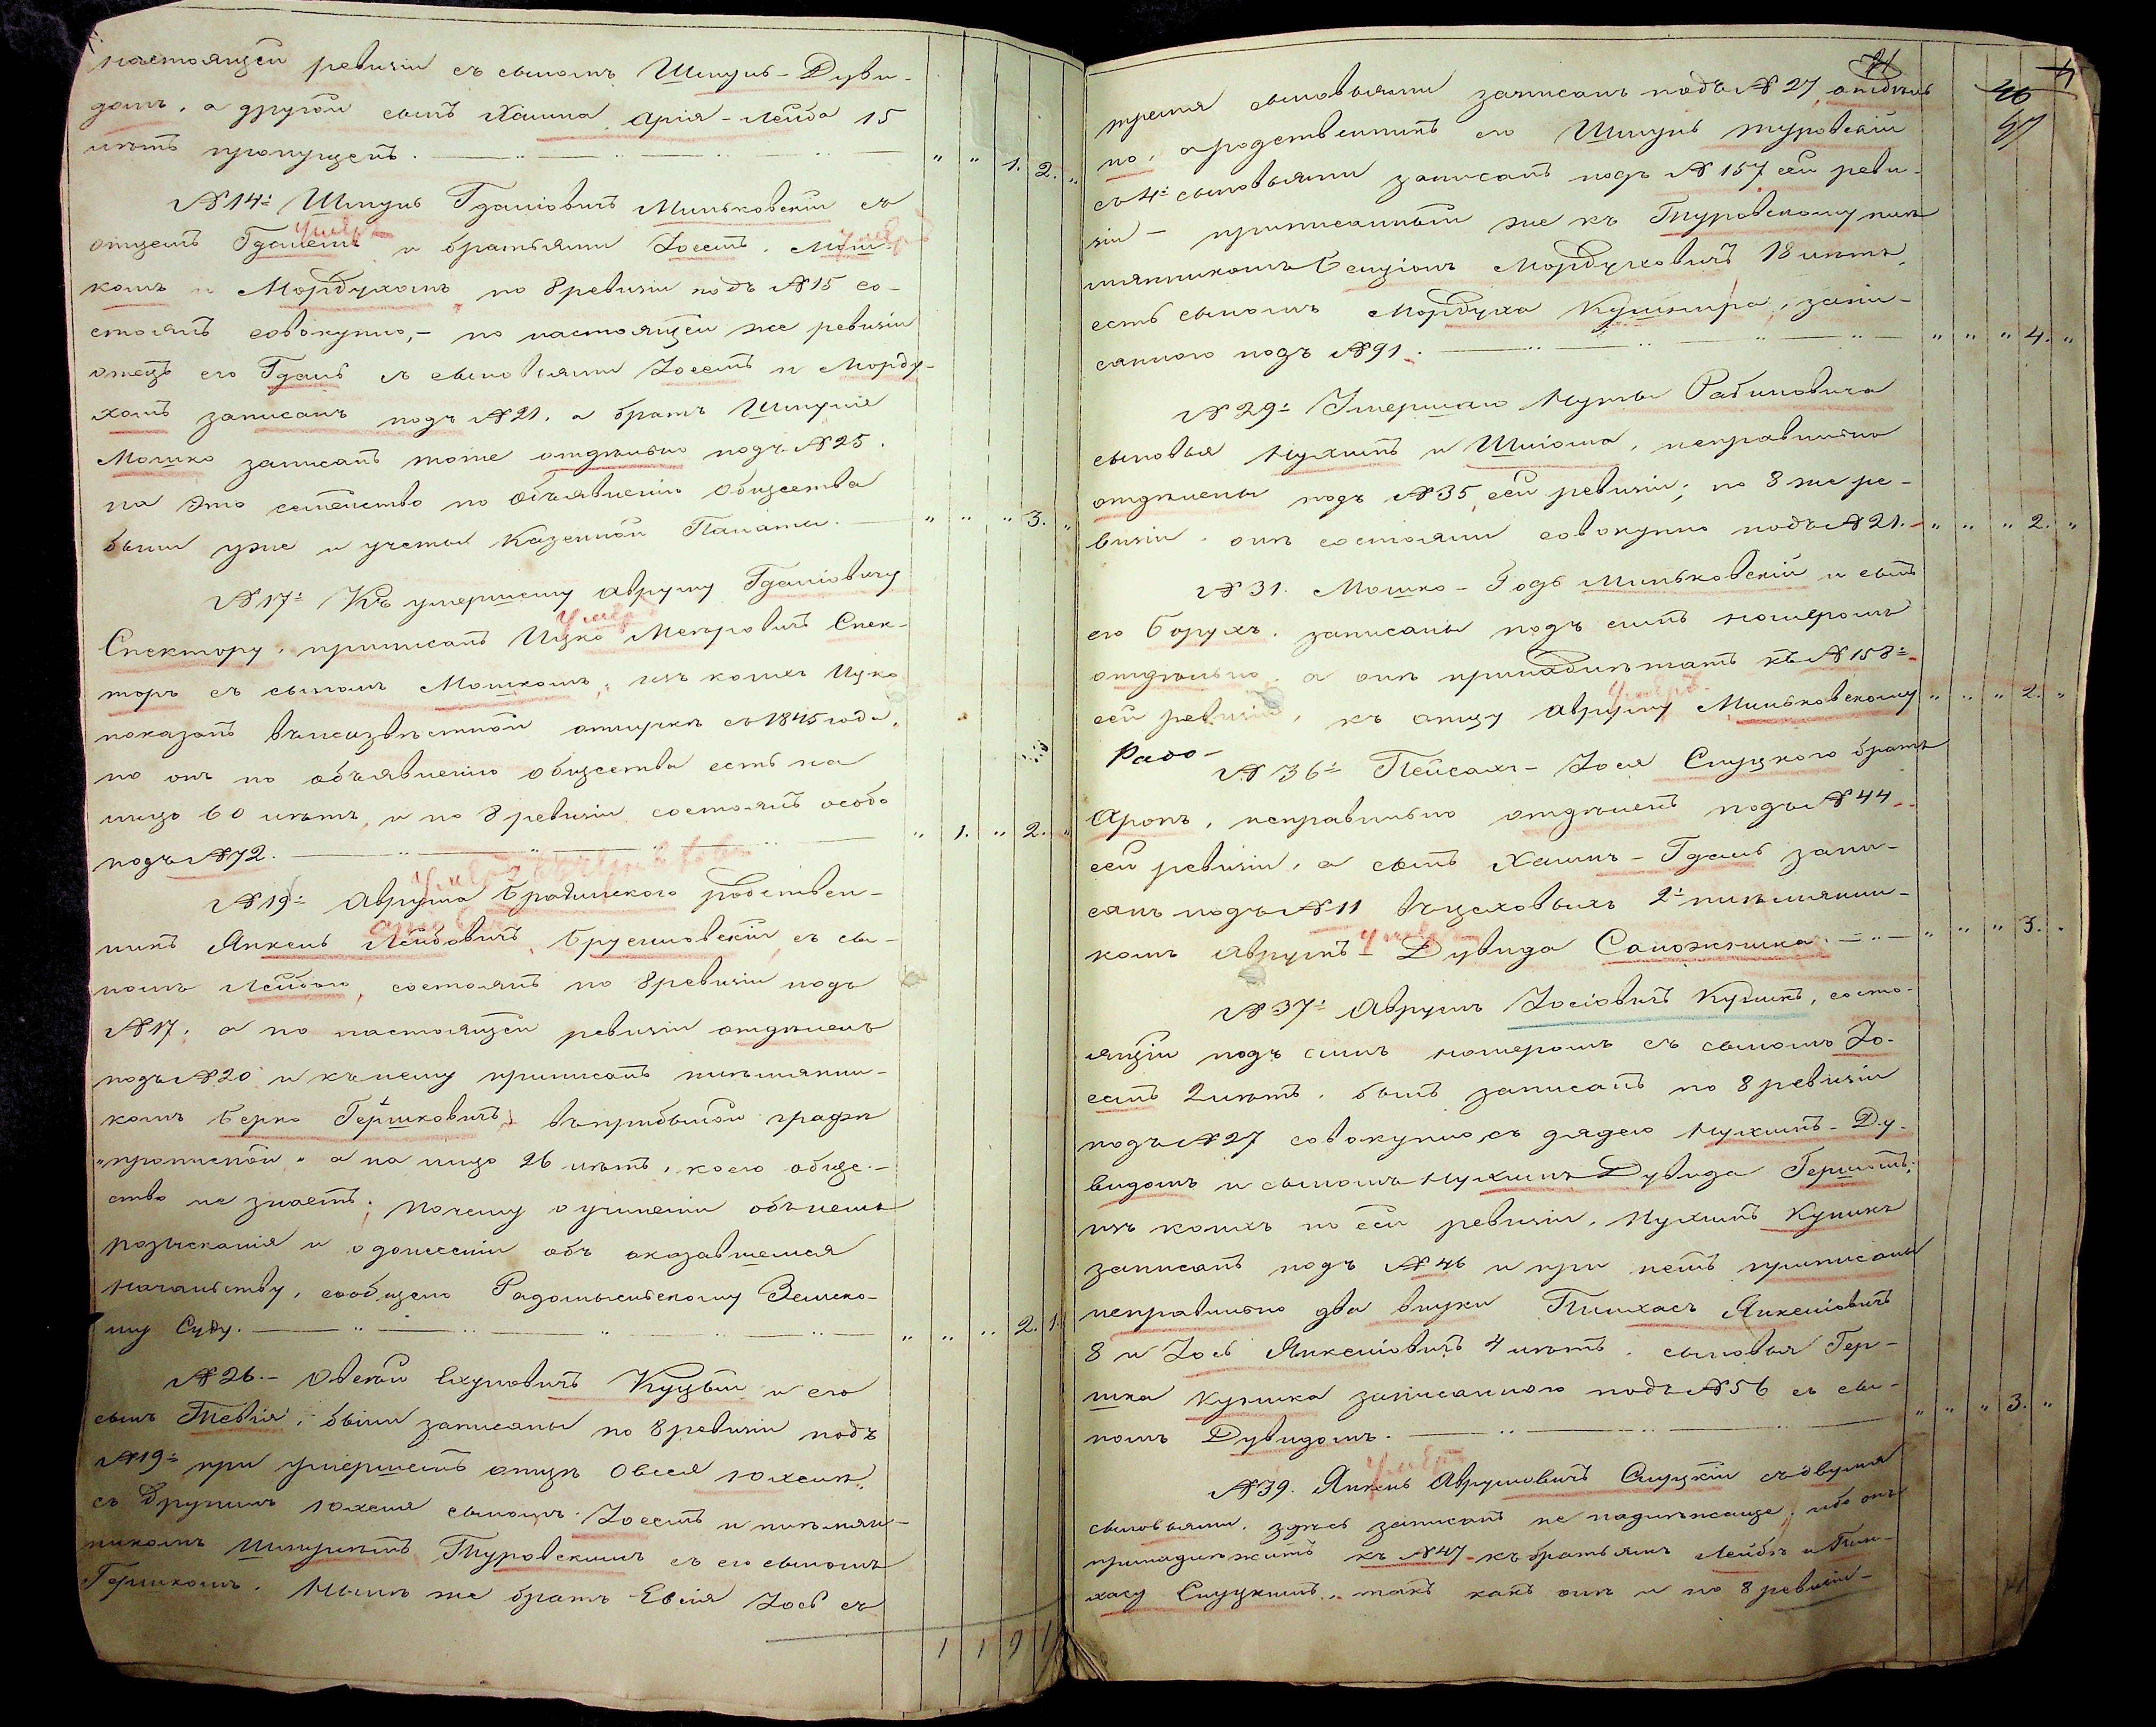 настоящей ревизіи съ сыномъ Шмуль-Дуви-
домъ, а другой сынъ Хаима Арія-Лейба 15
лѣтъ пропущенъ. " " 1. 2. "
№ 14. Шмуль Гдаліовичъ Миньковскій съ
умеръ умеръ
отцемъ Гдалемъ и братьями Іосемъ, Мош-
комъ и Мордухомъ по 8 ревизіи подъ №15 со-
стоятъ совокупно, – по настоящей же ревизіи
отецъ его Гдаль съ сыновьями Іосемъ и Морду-
хомъ записанъ подъ №21, а братъ Шмуля
Мошко записанъ тоже отдѣльно подъ №25.
на это семейство по объявленію общества
были уже и учеты Казенной Палаты. " " " 3. "
№ 17. Къ умершему Авруму Гдаліовичу
умеръ
Спектору, приписанъ Ицко Мееровичъ Спек-
торъ съ сыномъ Мошкомъ; изъ коихъ Ицко
показанъ въ неизвѣстной отлучкѣ съ 1845 года,
но онъ по объявленію общества есть на
лицо 60 лѣтъ, и по 8 ревизіи состоятъ особо
подъ №72. " 1. " 2. "
умеръ
№ 19. Аврума Бродинского родствен-
никъ Янкель Лейбовичъ Брусиловскій съ сы-
номъ Лейбою, состоятъ по 8 ревизіи подъ
№17, а по настоящей ревизіи отдѣленъ
подъ №20 и къ нему приписанъ племянни-
комъ Берко Гершковичъ, въ прибылой графѣ
"прописной" а на лицо 26 лѣтъ, коего обще-
ство не знаетъ; почему о учиненіи объ немъ
розысканія и о донесеніи объ оказавшемся
начальству, сообщено Радомысльскому Земско-
му Суду. " " " 2. 1.
№ 26. – Овсѣй Юхимовичъ Куцый и его
сынъ Тевія, были записаны по 8 ревизіи подъ
№19 при умершемъ отцѣ Овсея Юхимѣ
съ другимъ Юхима сыномъ Іосемъ и племян-
никомъ Шмулемъ Туровскимъ съ его сыномъ
Гершкомъ. Нынѣ же братъ Евсія Іось съ
1 1 9 1
71 46 4
47
тремя сыновьями записанъ подъ №27, отдѣль-
но, а родственникъ его Шмуль Туровскій
съ 4. сыновьями записанъ подъ №157, сей реви-
зіи – приписанный же къ Туровскому пле-
мянникомъ Бенціонъ Мордуховичъ 18 лѣтъ,
есть сыномъ Мордуха Кушнира, запи-
санного подъ №91. " " " 4. "
№ 29. Умершаго Нуты Рабиновича
сыновья Нухимъ и Шліома, неправильно
отдѣлены подъ №35, сей ревизіи; по 8 же ре-
визіи, они состояли совокупно подъ №21. " " " 2. "
№ 31. Мошко-Годь Миньковскій и сынъ
его Борухъ, записаны подъ симъ номеромъ
отдѣльно, а они принадлежатъ къ №158.
умеръ
сей ревизіи, къ отцу Авруму Миньковскому " " " 2. "
Радо-
№ 36. Пейсахъ-Іося Слуцкого братъ
Аронъ, неправильно отдѣленъ подъ №44
сей ревизіи, а сынъ Хаимъ-Гдаль запи-
санъ подъ №11 въ цеховыхъ 2. племянни-
умеръ
комъ Аврумъ-Дувида Сапожника. " " " 3. "
№ 37. Аврумъ Іосіовичъ Куликъ, состо-
ящій подъ симъ номеромъ съ сыномъ Іо-
семъ 2 лѣтъ, былъ записанъ по 8 ревизіи
подъ №27 совокупно съ дядею Нухимъ-Ду-
видомъ и сыномъ Нухимъ Дувида Гершомъ;
изъ коихъ по сей ревизіи, Нухимъ Куликъ
записанъ подъ №46 и при немъ приписаны
неправильно два внуки Пинхасъ Янкеліовичъ
8 и Іось Янкеліовичъ 4 лѣтъ, сыновья Гер-
шка Кулика записанного подъ №56 съ сы-
номъ Дувидомъ. " " " 3. "
умеръ
№ 39. Янкель Аврумовичъ Слуцкій съ двумя
сыновьями, здѣсь записанъ не надлежаще, ибо онъ
принадлежитъ къ №47 къ братьямъ Лейбѣ и Пин-
хасу Слуцкимъ, такъ какъ они и по 8 ревизіи-